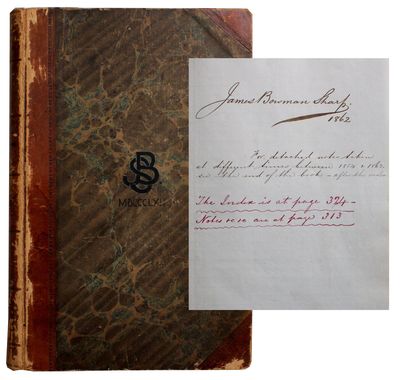 JBS
James Bowman Sharp.
1862
For detached notes taken
at different times between 1854 & 1862
see the end of this book – after the index
The Index is at page 324 –
Notes are at page 313